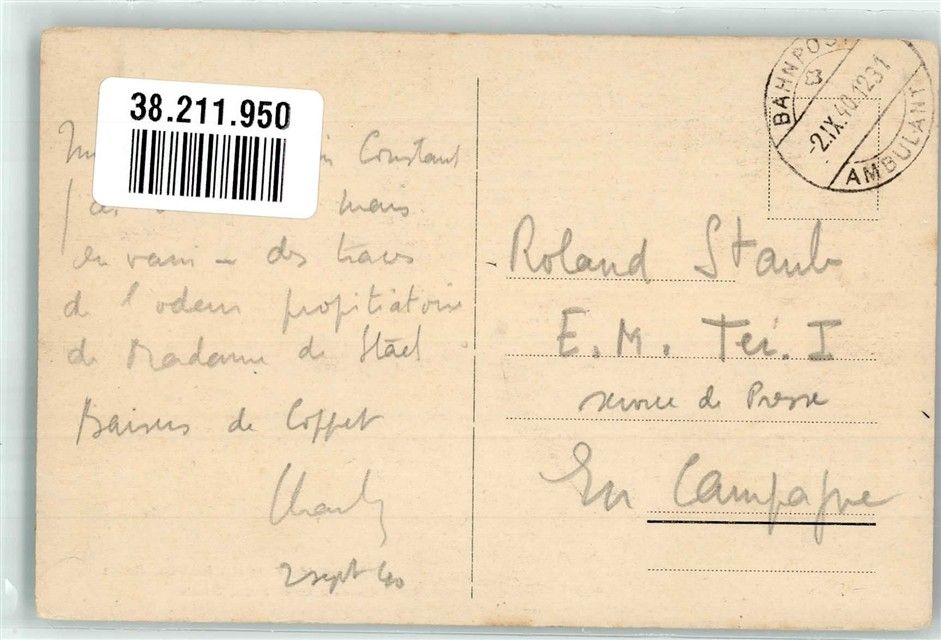 38.211.950
Constant
mais
en vain – des traces
de l'odeur propitiatoire
de Madame de Staël
Baisers de Coppet
Charly
2 sept 40
BAHNPOST
-2.IX.40.1231
AMBULANT
Roland Staub
E. M. Ter. I
service de Presse
En Campagne